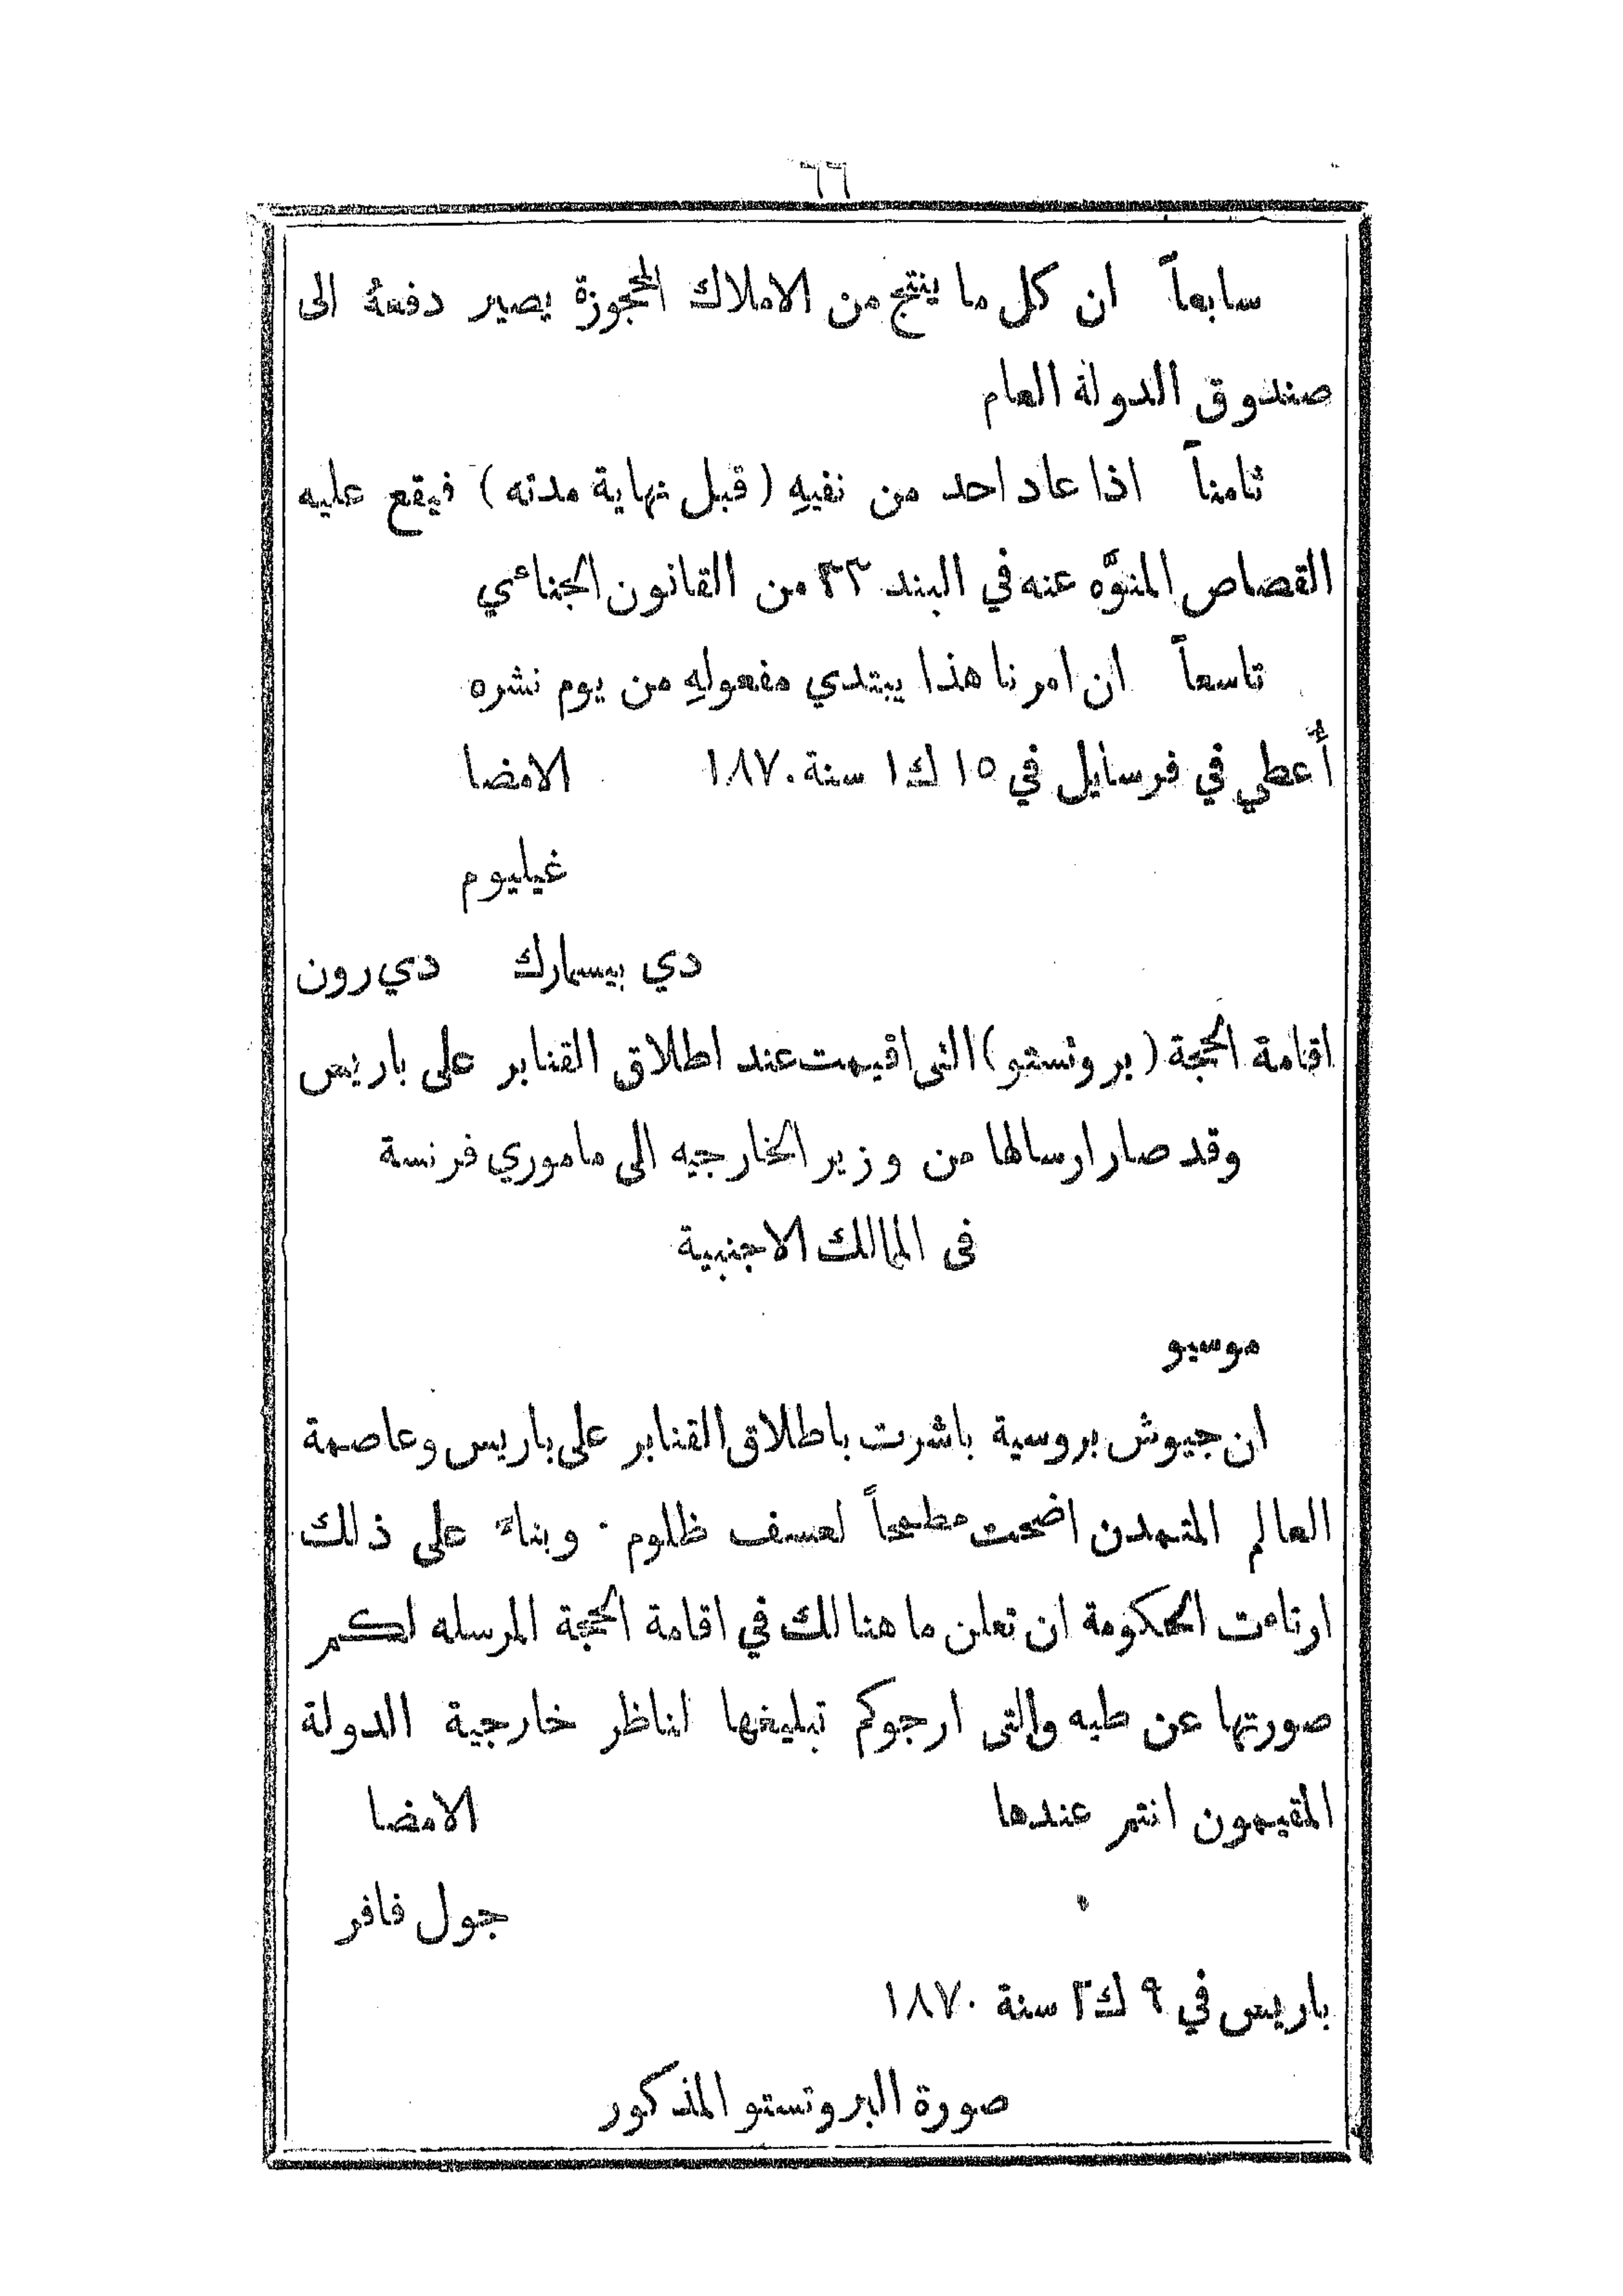 ٦٦
سابعاً ان كل ما ينتج من الاملاك المحجوزة يصير دفعهُ الى
صندوق الدولة العام
ثامناً اذا عاد احد من نفيهِ (قبل نهاية مدته) فيقع عليه
القصاص المنوَّه عنه في البند ٣٣ من القانون الجنائي
تاسعاً ان امرنا هذا يبتدي مفعولهِ من يوم نشره
أُعطي في فرسايل في ١٥ ك١ سنة ١٨٧٠ الامضا
غيليوم
دي بيسمارك دي رون
اقامة الحجة (بروتستو) التى اقيمت عند اطلاق القنابر على باريس
وقد صار ارسالها من وزير الخارجيه الى ماموري فرنسة
فى الممالك الاجنبية
موسيو
ان جيوش بروسية باشرت باطلاق القنابر على باريس وعاصمة
العالم المتمدن اضحت مطمحاً لعسف ظلوم ٠ وبناءً على ذلك
ارتاءت الحكومة ان تعلن ما هنالك في اقامة الحجة المرسله لكم
صورتها عن طيه والتى ارجوكم تبليغها لناظر خارجية الدولة
المقيمون انتم عندها الامضا
جول فافر
باريس في ٩ ك٢ سنة ١٨٧٠
صورة البروتستو المذكور